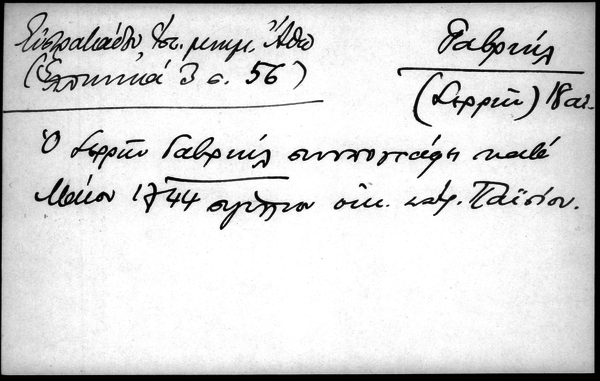 Εὐστρατιάδου, Ἱστ. μνημ. Ἄθω
(Ἑλληνικά 3 σ. 56)
Γαβριήλ
(Σερρῶν) 18 αἰ.
Ὁ Σερρῶν Γαβριήλ συνυπογράφει κατά
Μάϊον 1744 σιγίλλιον οἰκ. πατρ. Παϊσίου.